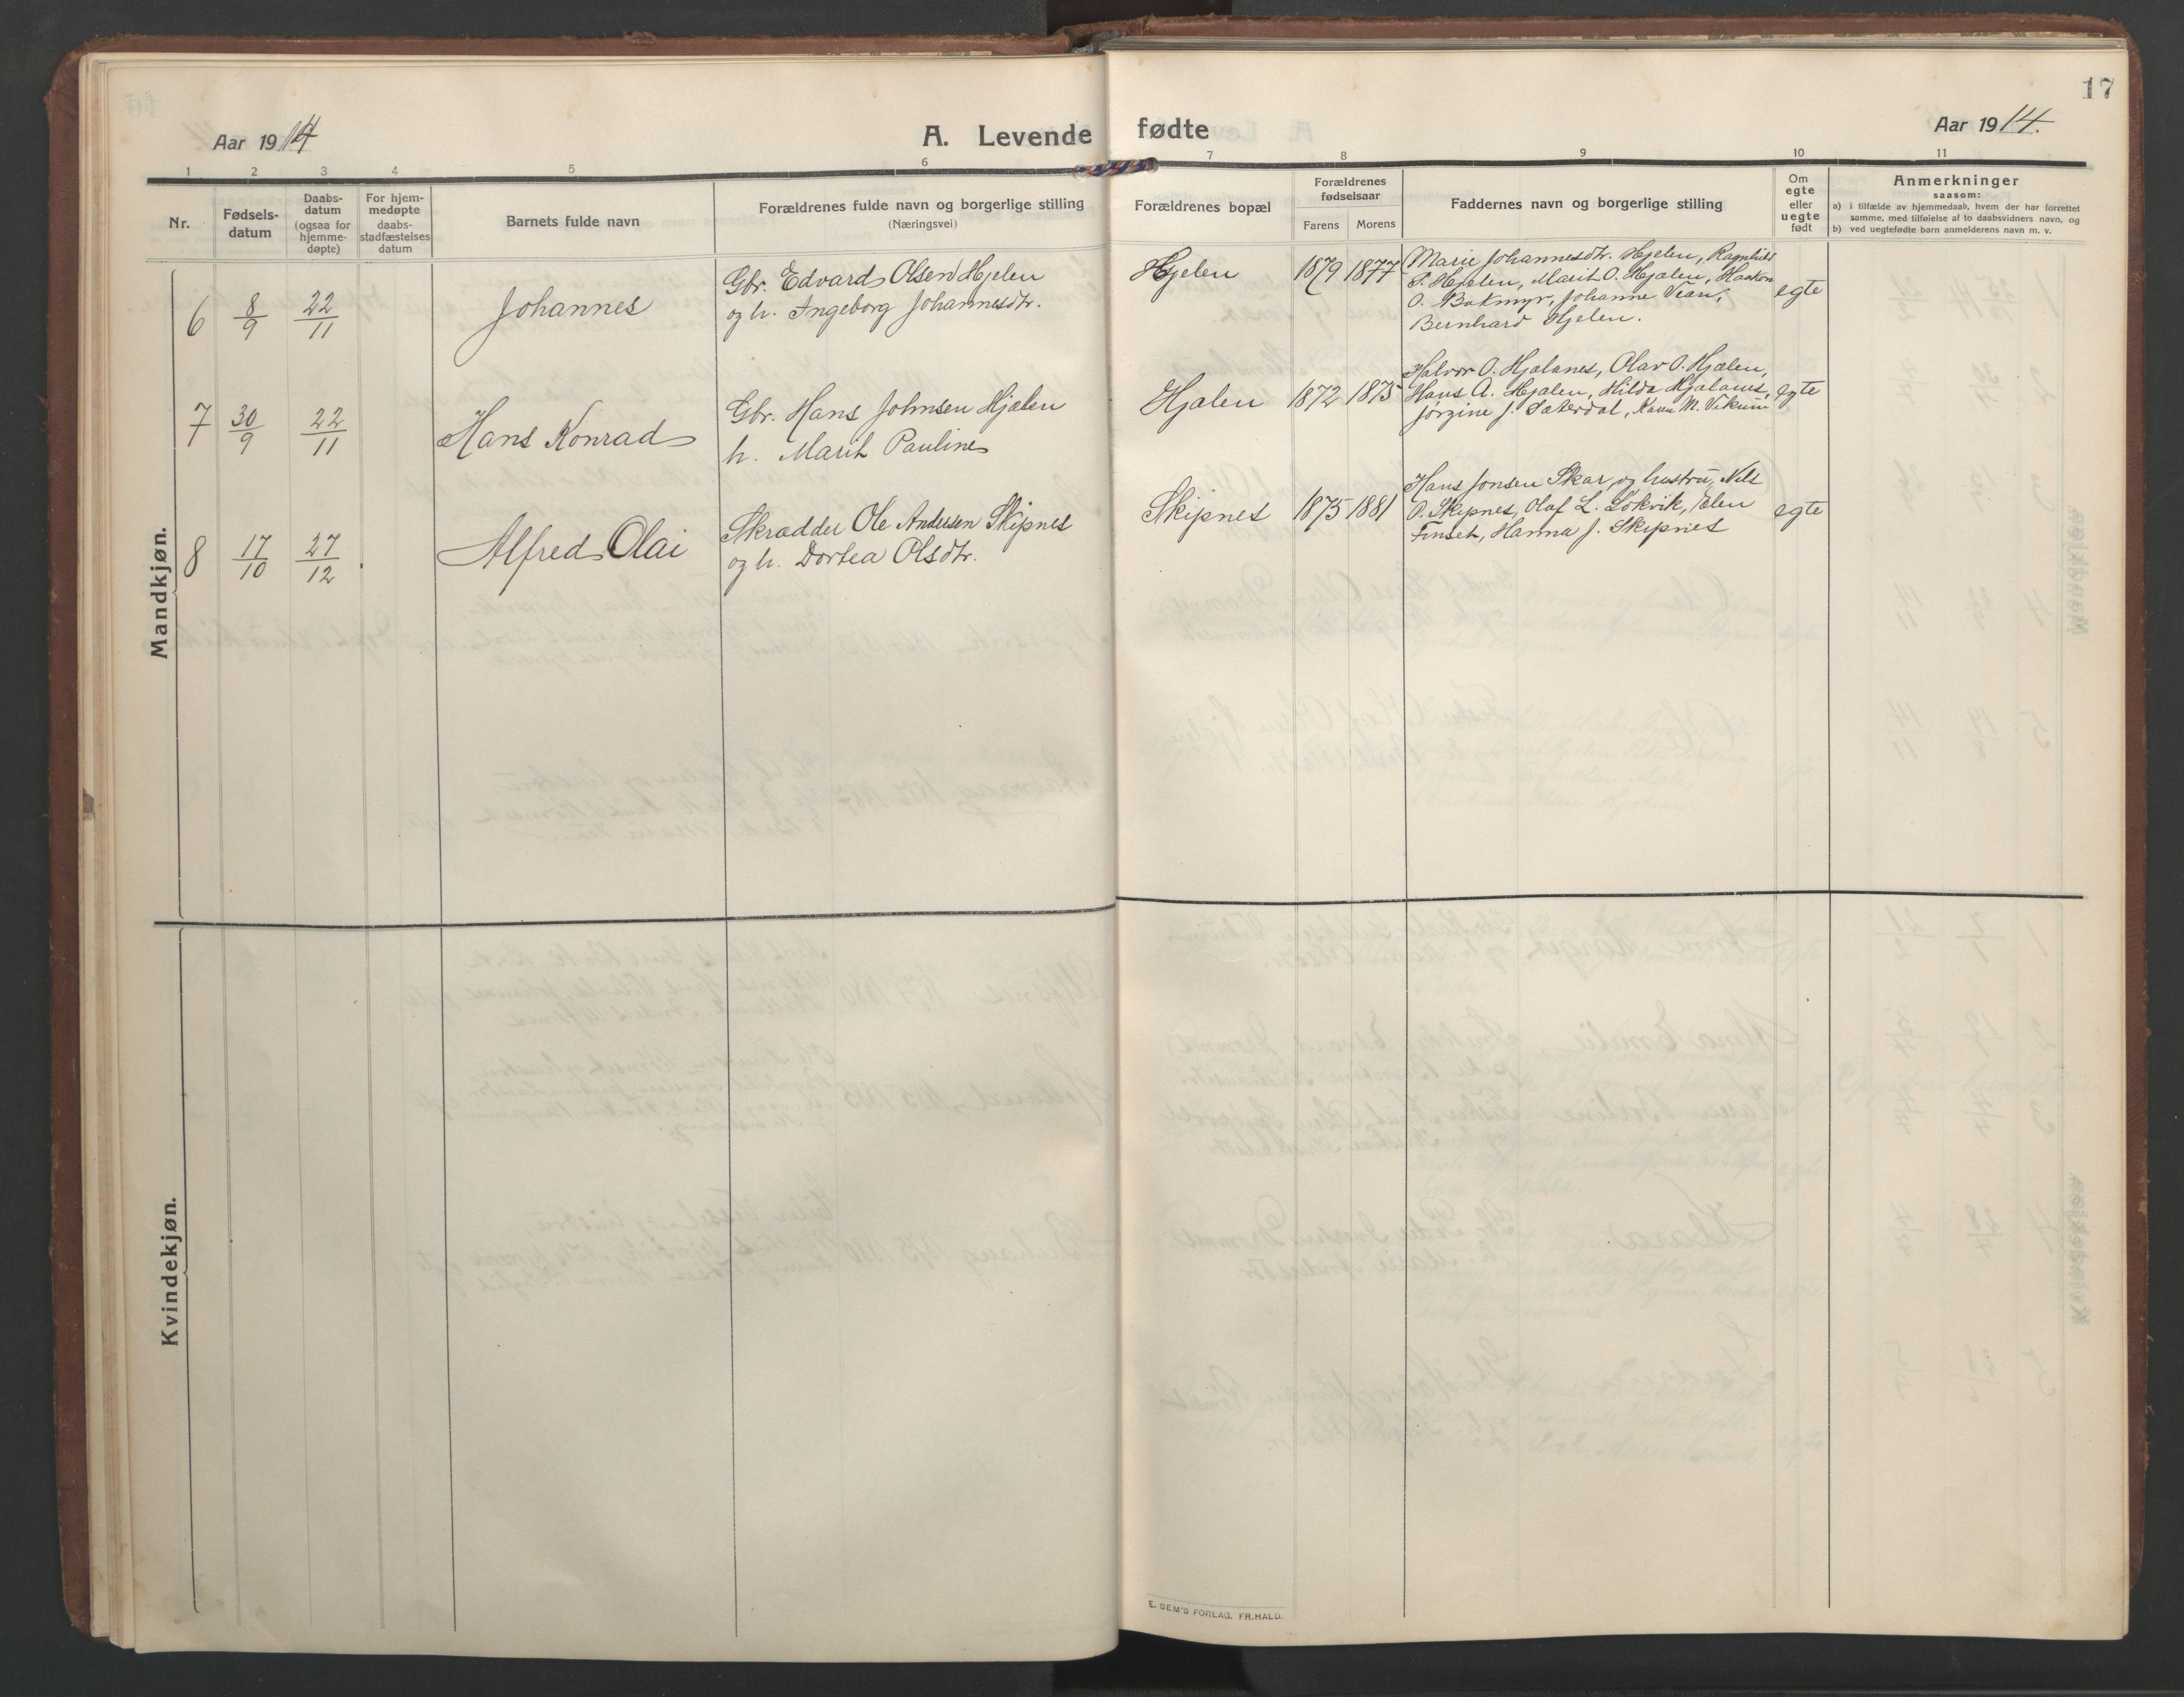 17
Aar 1914
A. Levende fødte
Aar 1914.
1 2 3 4 5 6 7 8 9 10 11
Nr.
Fødsels-
datum
Daabs-
datum
(ogsaa for
hjemme-
døpte)
For hjem-
medøpte
daabs-
stadfæstelses
datum
Barnets fulde navn
Forældrenes fulde navn og borgerlige stilling
(Næringsvei)
Forældrenes bopæl
Forældrenes
fødselsaar
Farens Morens
Faddernes navn og borgerlige stilling
Om
egte
eller
uegte
født
Anmerkninger
saasom:
a) i tilfælde av hjemmedaab, hvem der har forrettet
samme, med tilføielse af to daabsvidners navn, og
b) ved uegtefødte barn anmelderens navn m. v.
Mandkjøn.
6 8/9 22/11 Johannes
Gbr. Edvard Olsen Hjelen
og h. Ingeborg Johannesdtr.
Hjelen 1879 1877
Marie Johannesdtr. Hjelen, Ragnhild
P. Hjelen, Marit O. Hjælen, Haakon
O. Bakmyr, Johanne Vean,
Bernhard Hjelen.
egte
7 30/9 22/11 Hans Konrad
Gbr. Hans Johnsen Hjælen
h. Marit Pauline
Hjalen 1872 1875
Halvor O. Hjalanes, Olav O. Hjælen,
Hans A. Hjalen, Hilda Hjalanes,
Jørgine J. Sæterdal, Karen M. Vikum
egte
8 17/10 27/12 Alfred Olai
Skrædder Ole Andersen Skipnes
og h. Dortea Olsdtr.
Skipnes 1875 1881
Hans Jonsen Skar og hustru, Nils
O. Skipnes, Olaf L. Løkvik, Elen
Finset, Hanna J. Skipnes
egte
Kvindekjøn.
E. SEM'S FORLAG. FR.HALD.